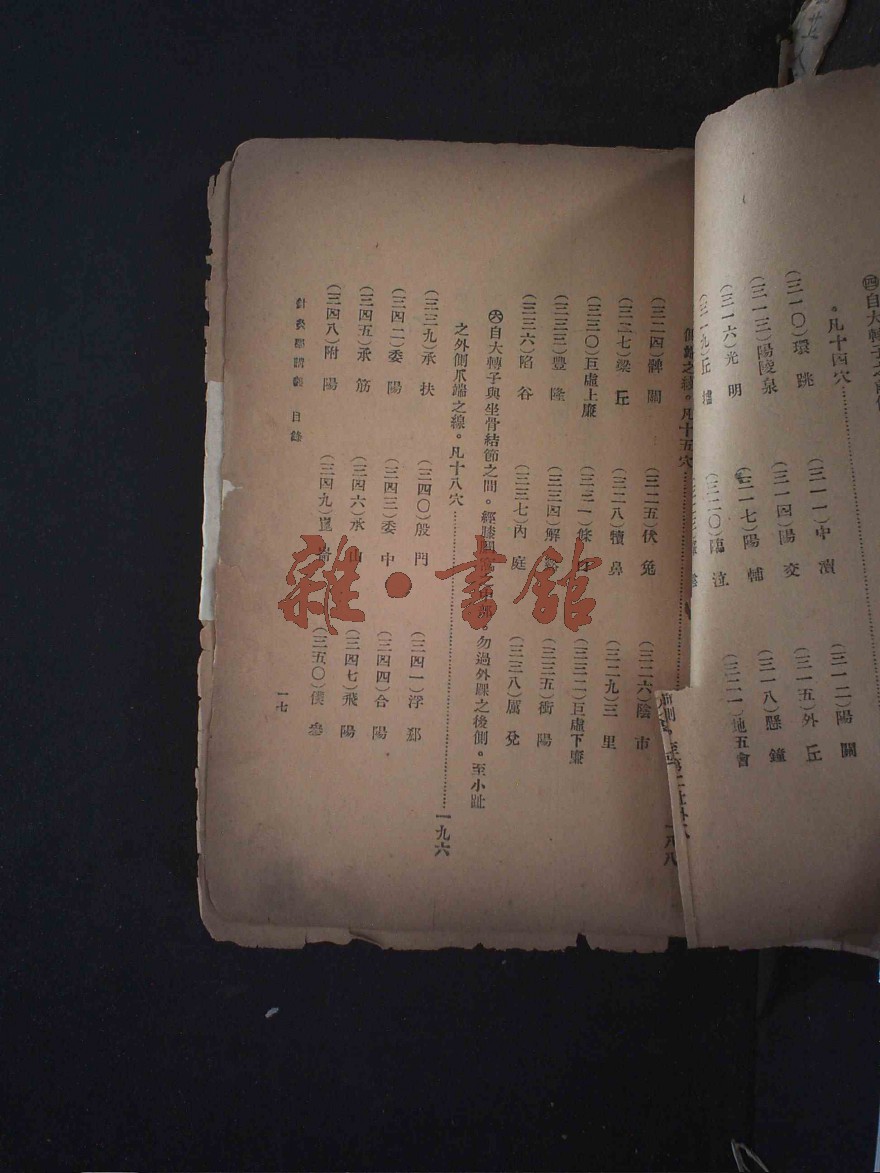 ㊃自大轉子之
。凡十四穴
(三一〇)環跳 (三一一)中瀆 (三一二)陽關
(三一三)陽陵泉 (三一四)陽交 (三一五)外丘
(三一六)光明 (三一七)陽輔 (三一八)懸鐘
(三一九)丘墟 (三二〇)臨泣 (三二一)地五會
側端之線。凡十五穴……一八八
(三二四)髀關 (三二五)伏兔 (三二六)陰市
(三二七)梁丘 (三二八)犢鼻 (三二九)三里
(三三〇)巨虛上廉 (三三一)條口 (三三二)巨虛下廉
(三三三)豐隆 (三三四)解谿 (三三五)衝陽
(三三六)陷谷 (三三七)內庭 (三三八)厲兌
㊅自大轉子與坐骨結節之間。經膝膕窩之中部。勿過外踝之後側。至小趾
之外側爪端之線。凡十八穴……一九六
(三三九)承扶 (三四〇)殷門 (三四一)浮郄
(三四二)委陽 (三四三)委中 (三四四)合陽
(三四五)承筋 (三四六)承山 (三四七)飛陽
(三四八)附陽 (三四九)崑崙 (三五〇)僕參
針灸學講義 目錄 一七
雜·書館